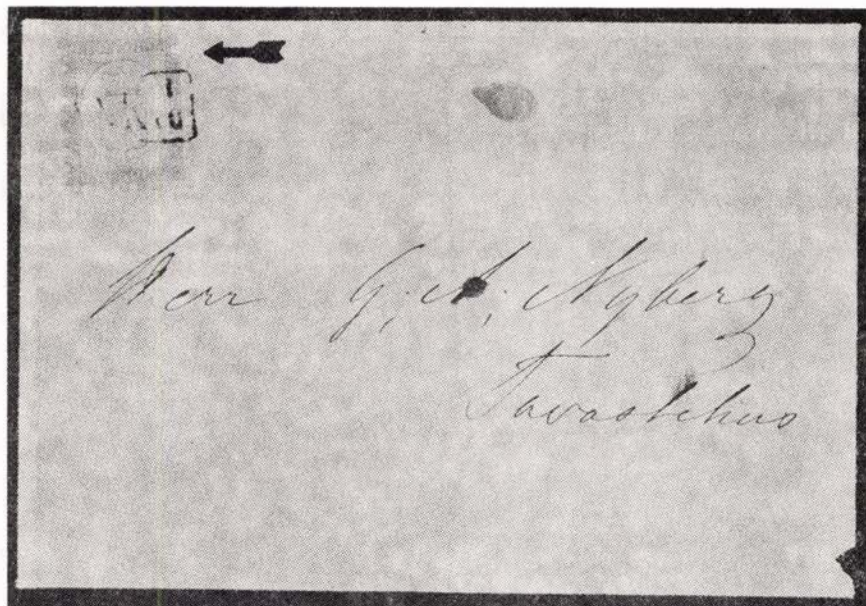 Herr G. A. Nyberg
Tavastehus